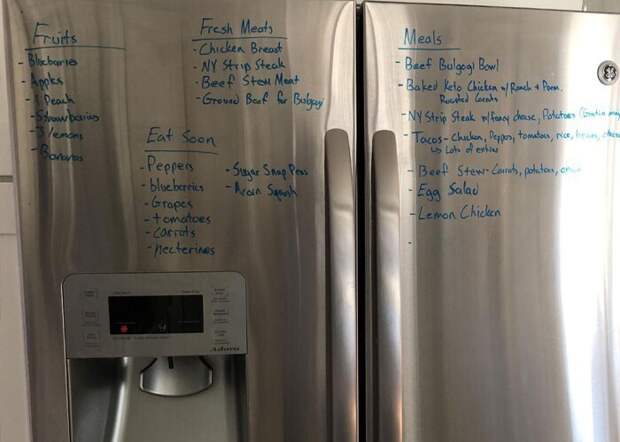 Fruits
- Blueberries
- Apples
- 1 Peach
- Strawberries
- 3 lemons
- Bananas
Fresh Meats
- Chicken Breast
- NY Strip Steak
- Beef Stew Meat
- Ground Beef for Bulgogi
Eat Soon
- Peppers
- blueberries
- Grapes
- tomatoes
- carrots
- necterines
- Sugar Snap Peas
- Acorn Squash
Adora
Meals
- Beef Bulgogi Bowl
- Baked Keto Chicken w/ Ranch + Parm.
Roasted Carrots
- NY Strip Steak w/ fancy cheese, Potatoes (Gratin
- Tacos - Chicken, Peppers, tomatoes, rice,
Lots of extras
- Beef Stew - Carrots, potatoes,
- Egg Salad
- Lemon Chicken
-
GE